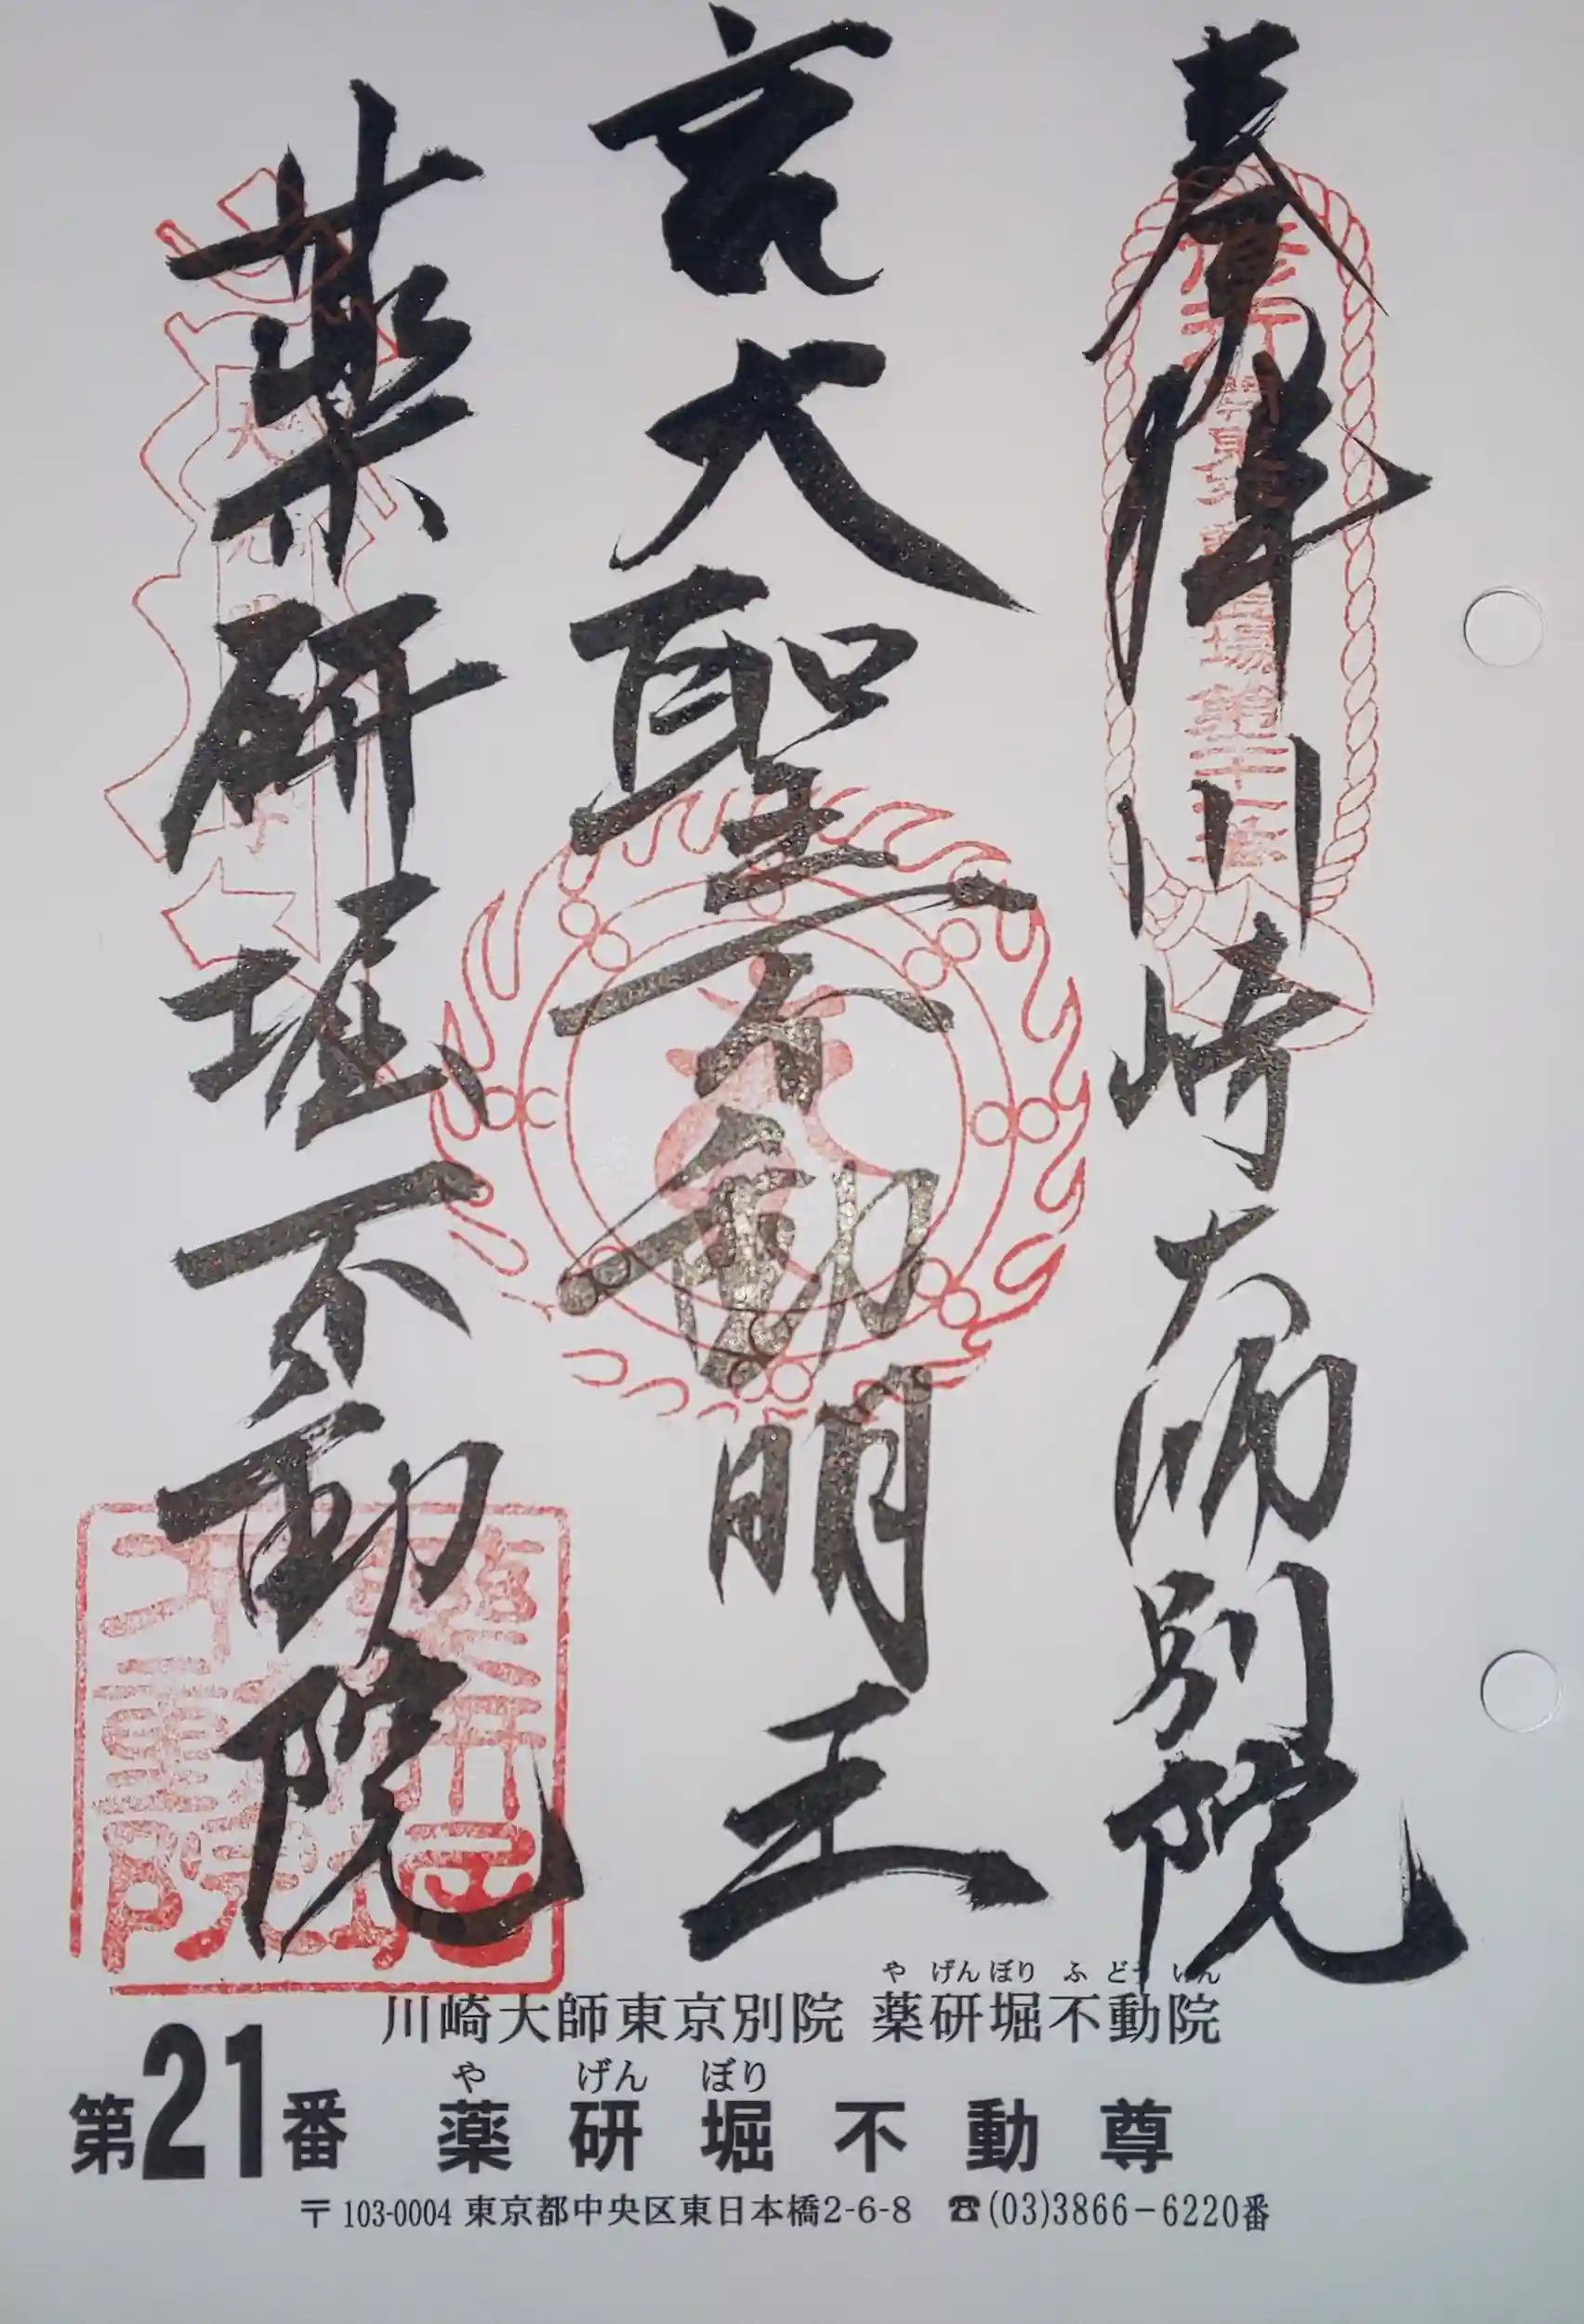 奉拝 川崎大師別院
大聖不動明王
薬研堀不動院
や げん ぼり ふ どう いん
川崎大師東京別院 薬研堀不動院
や げん ぼり
第21番 薬研堀不動尊
〒103-0004 東京都中央区東日本橋2-6-8 ☎(03)3866-6220番